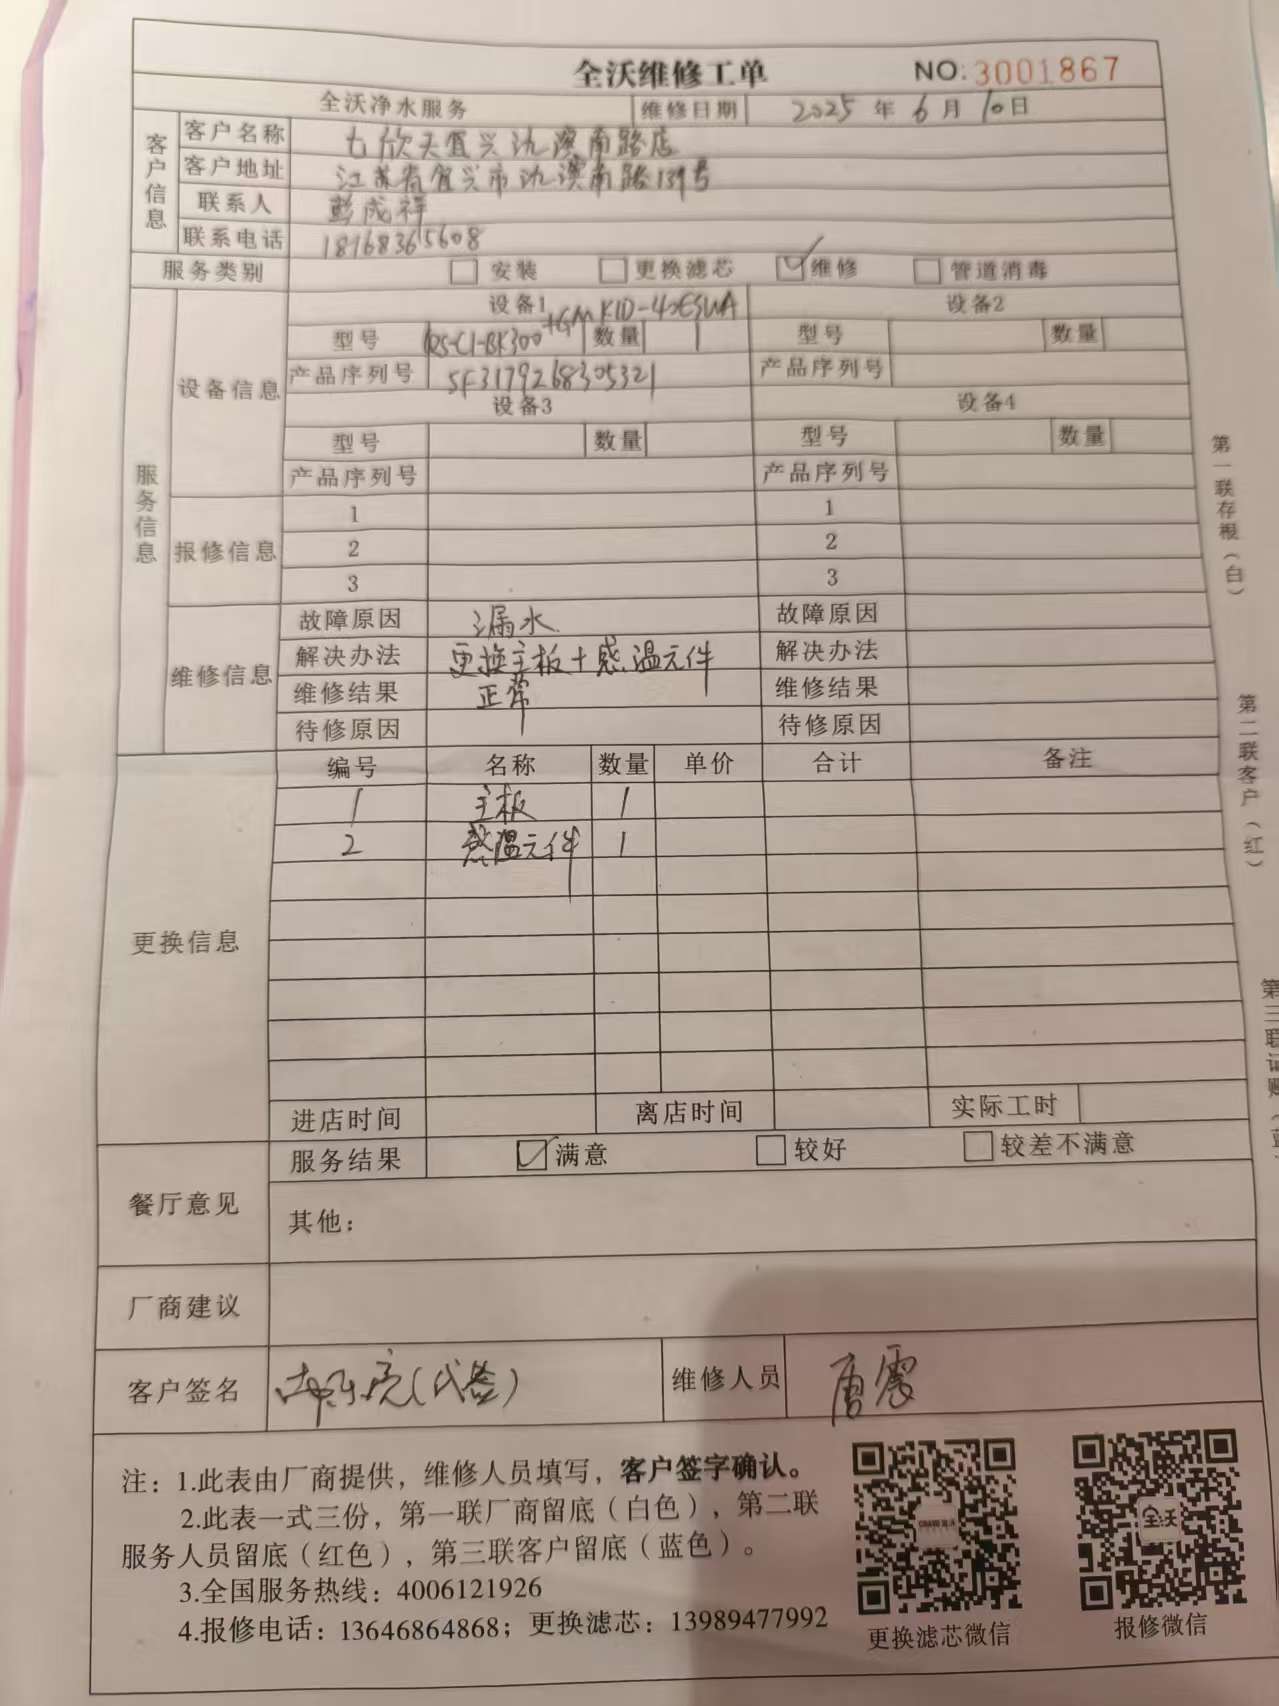 全沃维修工单 NO:3001867
全沃净水服务 维修日期 2025年6月10日
客户信息
客户名称 七欣天宜兴氿滨南路店
客户地址 江苏省宜兴市氿滨南路139号
联系人 彭成祥
联系电话 18168365608
服务类别 安装 更换滤芯 维修 管道消毒
服务信息
设备信息
设备1 设备2
型号 +GM K1D-40ESWA 数量 1 型号 数量
产品序列号 SF3179268305321 产品序列号
设备3 设备4
型号 数量 型号 数量
产品序列号 产品序列号
报修信息
1 1
2 2
3 3
维修信息
故障原因 漏水 故障原因
解决办法 更换主板+感温元件 解决办法
维修结果 正常 维修结果
待修原因 待修原因
更换信息
编号 名称 数量 单价 合计 备注
1 主板 1
2 感温元件 1
进店时间 离店时间 实际工时
餐厅意见
服务结果 满意 较好 较差不满意
其他：
厂商建议
客户签名 (代签) 维修人员 唐震
注：1.此表由厂商提供，维修人员填写，客户签字确认。
2.此表一式三份，第一联厂商留底（白色），第二联
服务人员留底（红色），第三联客户留底（蓝色）。
3.全国服务热线：4006121926
4.报修电话：13646864868；更换滤芯：13989477992
更换滤芯微信
全沃
报修微信
第一联存根（白）
第二联客户（红）